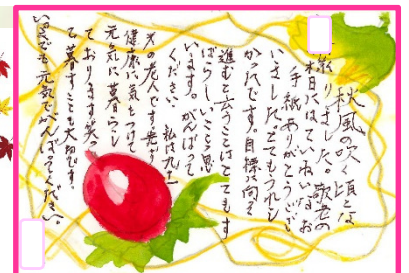 秋風の吹く頃とな
りました。敬老の
日にはていねいなお
手紙ありがとうござ
いました。とてもうれし
かったです。目標に向って
進むと云うことはとてもす
ばらしいことと思
います。がんばって
ください。私は九十
才の老人です。
健康に気をつけて
元気に暮らし
ております。笑っ
て暮すことも大切です。
いつまでも元気でがんばってください。